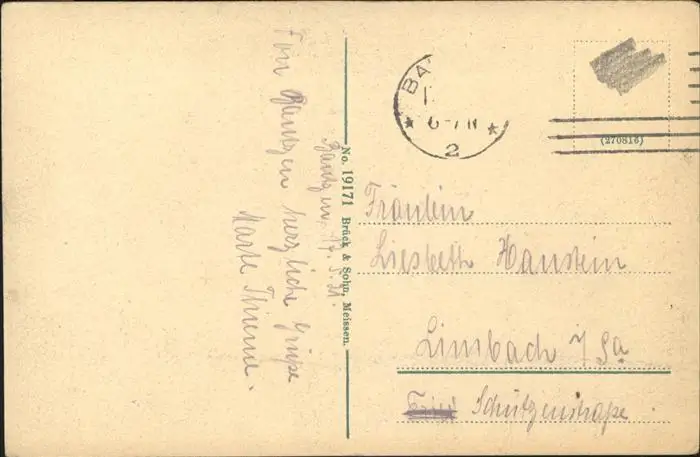 Von Bautzen herzliche Grüße
Marte Thieme.
Bautzen, 17. 5. 21.
No. 19171 Brück & Sohn, Meissen.
BA
6-7 N
2
(270816)
Fräulein
Liesbeth Hanstein
Limbach i/Sa
Schützenstraße